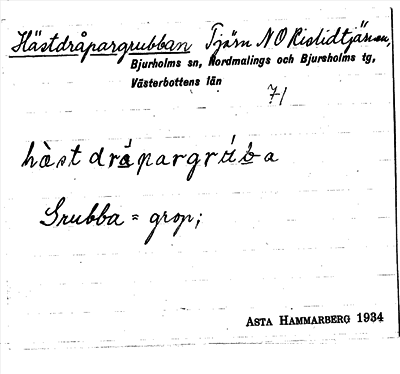 Hästdråpargrubban Tjärn NO Rislidtjärnen,
Bjurholms sn, Nordmalings och Bjurholms tg,
Västerbottens län
71
hàst drå̀pargrúb̲a
Grubba = grop;
ASTA HAMMARBERG 1934